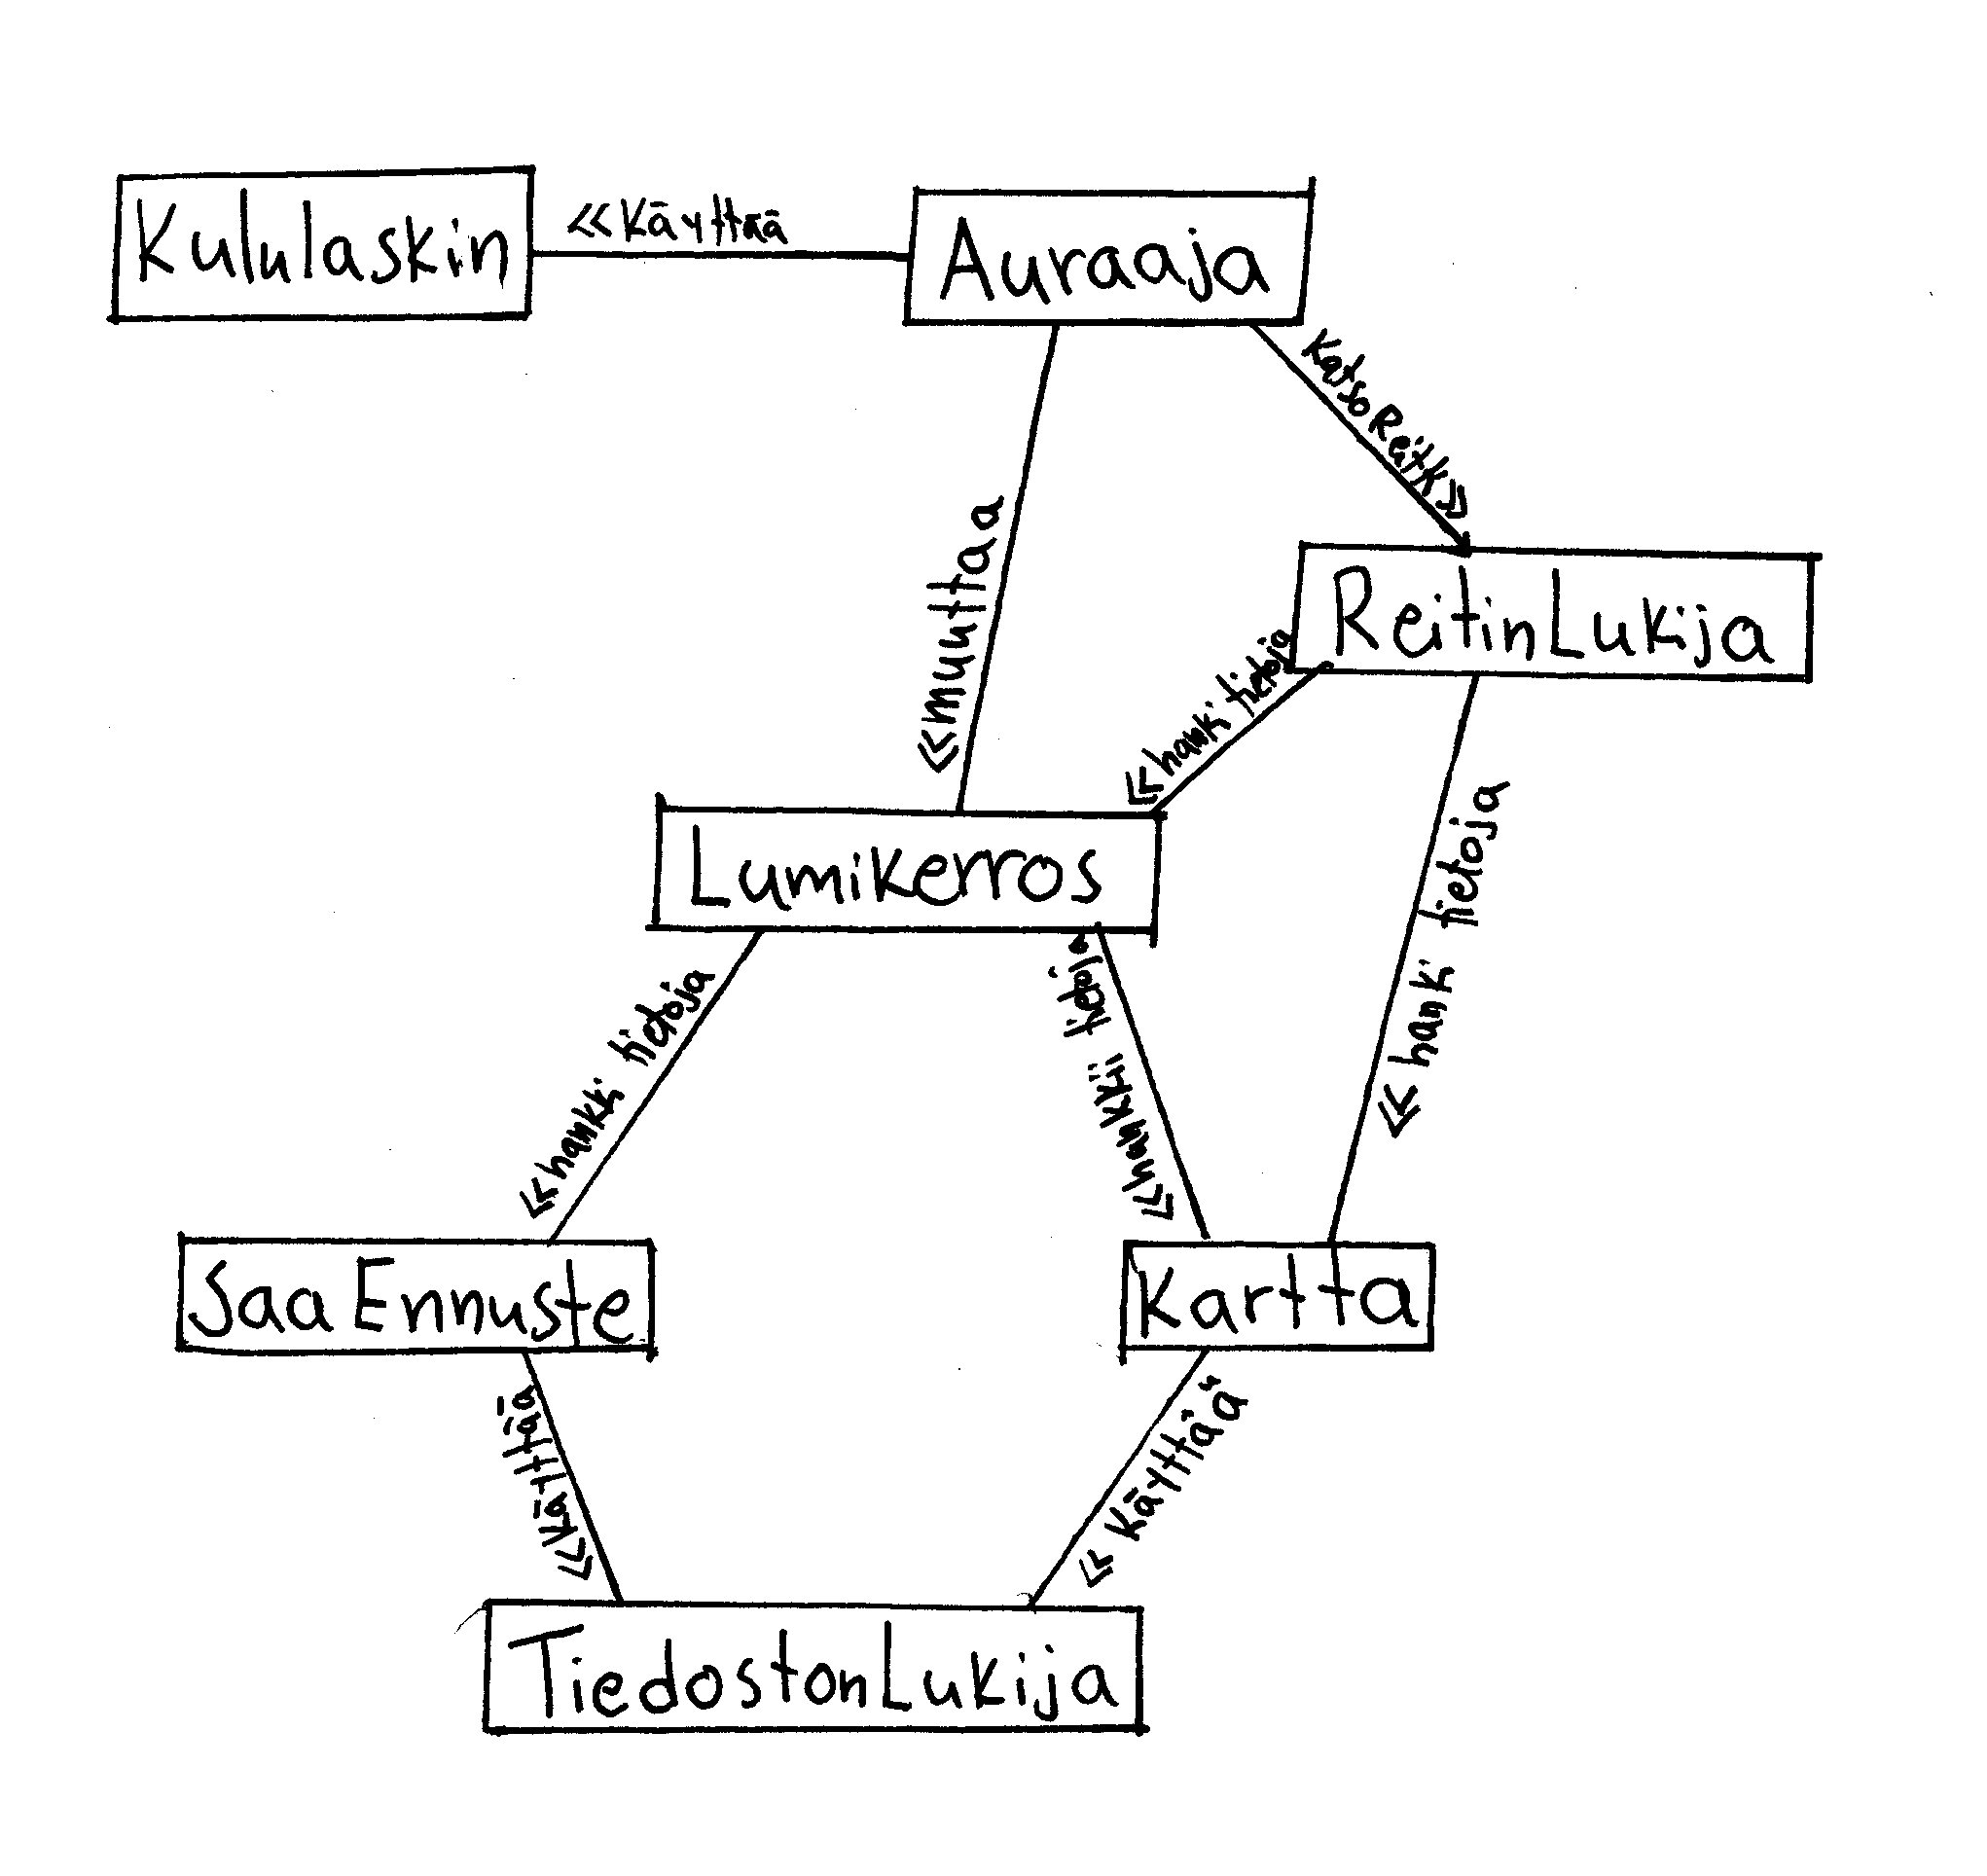 Kululaskin
<<Käyttää
Auraaja
Katso Reitk>>
<<muuttaa
ReitinLukija
<<hanki tietoja
Lumikerros
<<hanki tietoja
<<hankki tietoja
<<hankkii tietoja
SaaEnnuste
Kartta
<<Käyttää
<<Käyttää
TiedostonLukija